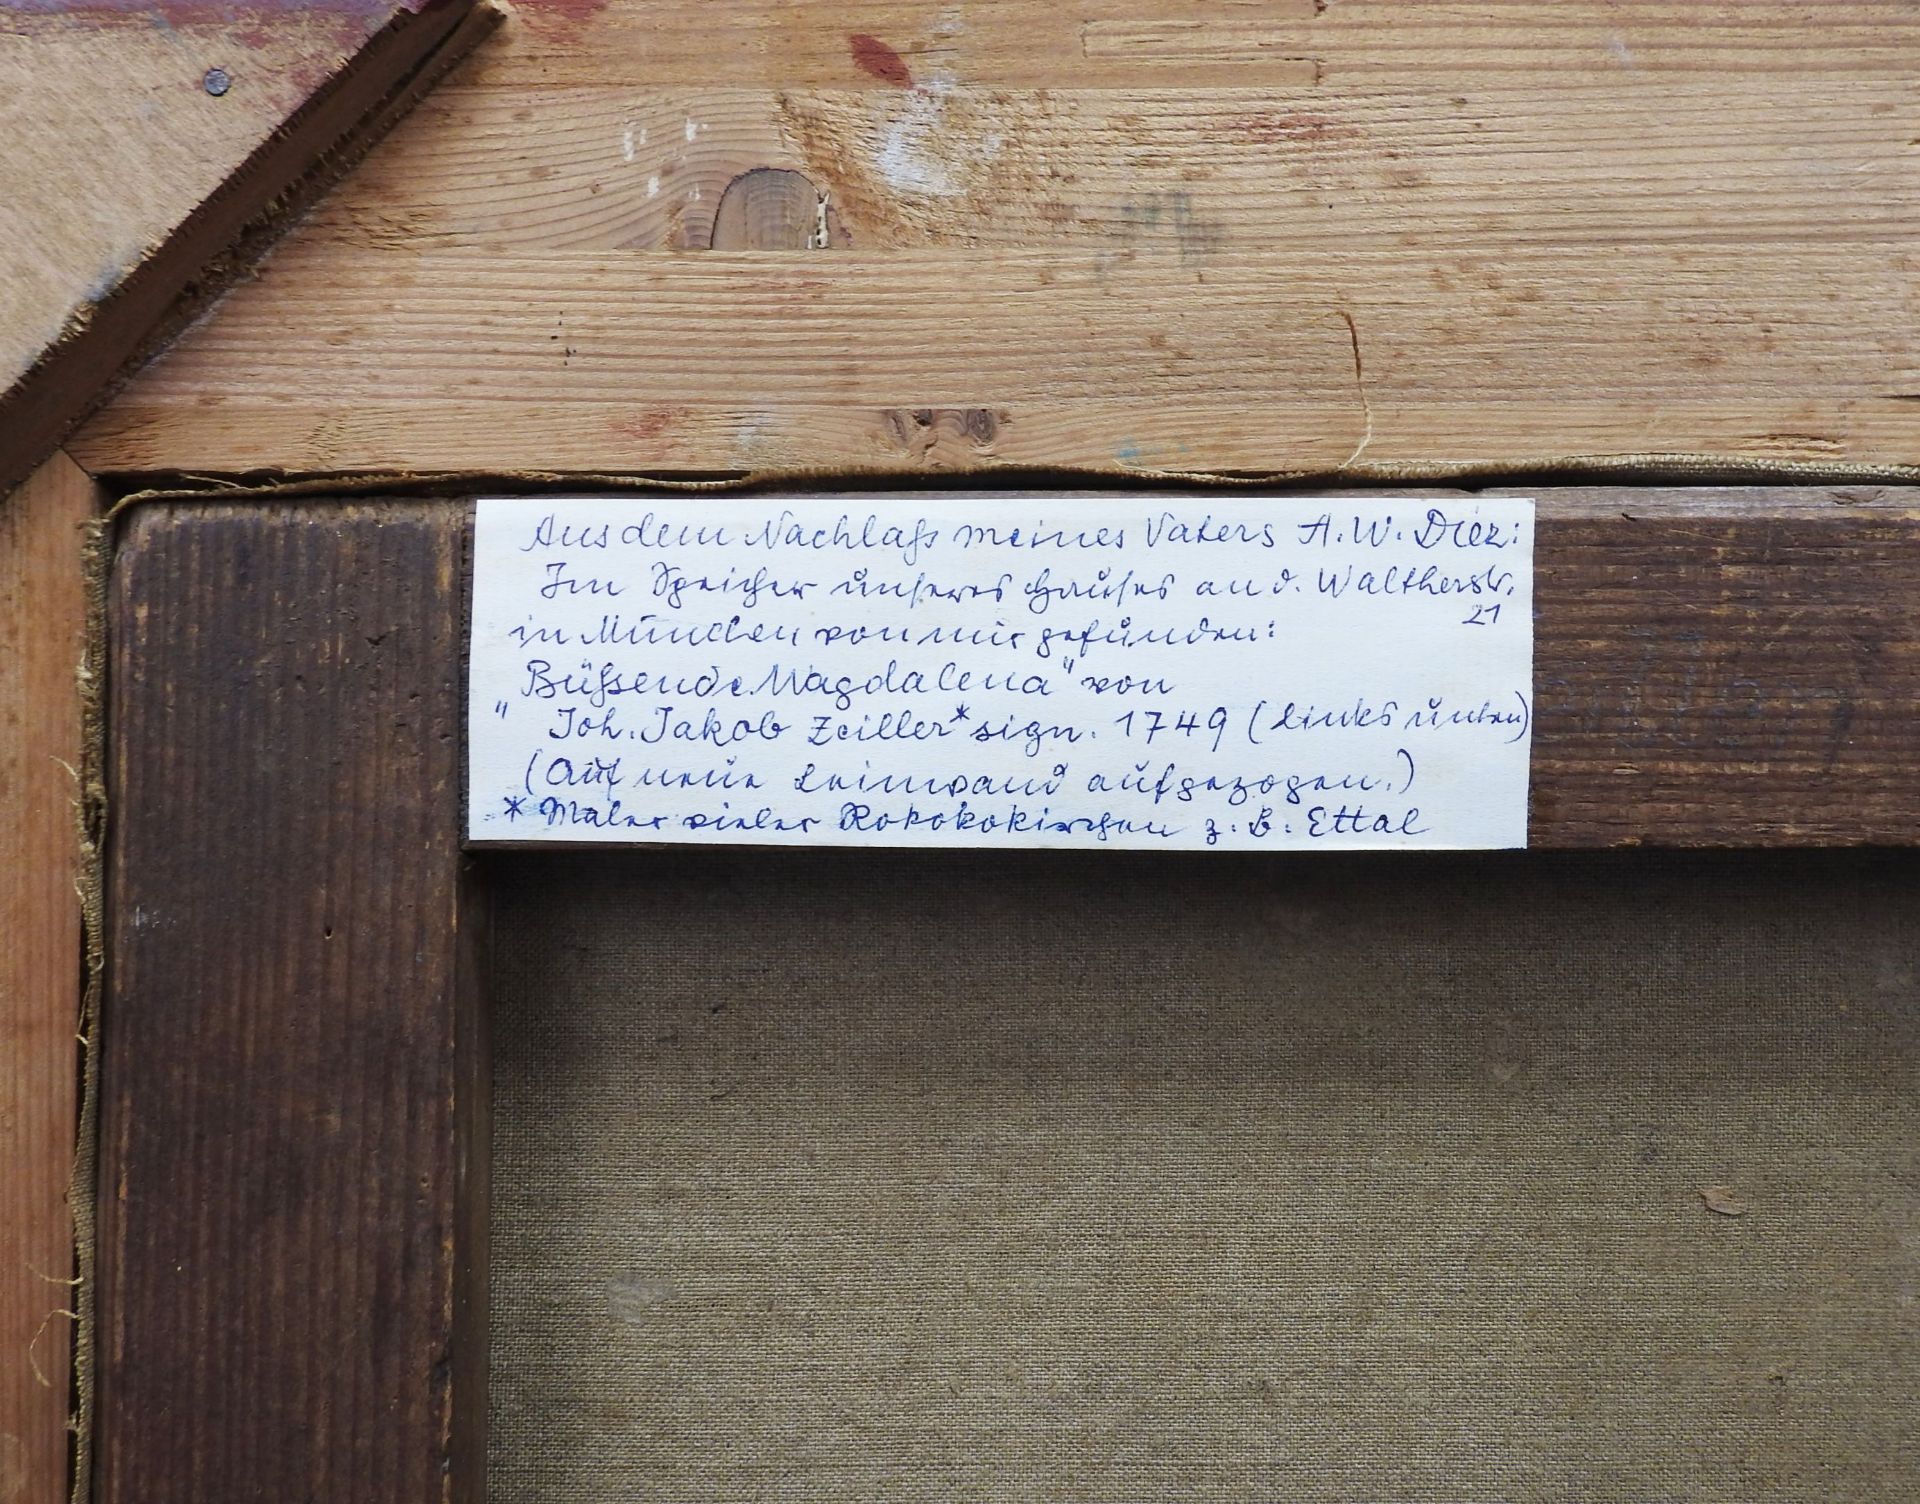 Aus dem Nachlaß meines Vaters A. W. Diez:
Im Speicher unseres Hauses an d. Waltherstr. 21
in München von mir gefunden:
"Büßende Magdalena" von
Joh. Jakob Zeiller* sign. 1749 (links unten)
(Auf neue Leinwand aufgezogen.)
* Maler vieler Rokokokirchen z. B. Ettal